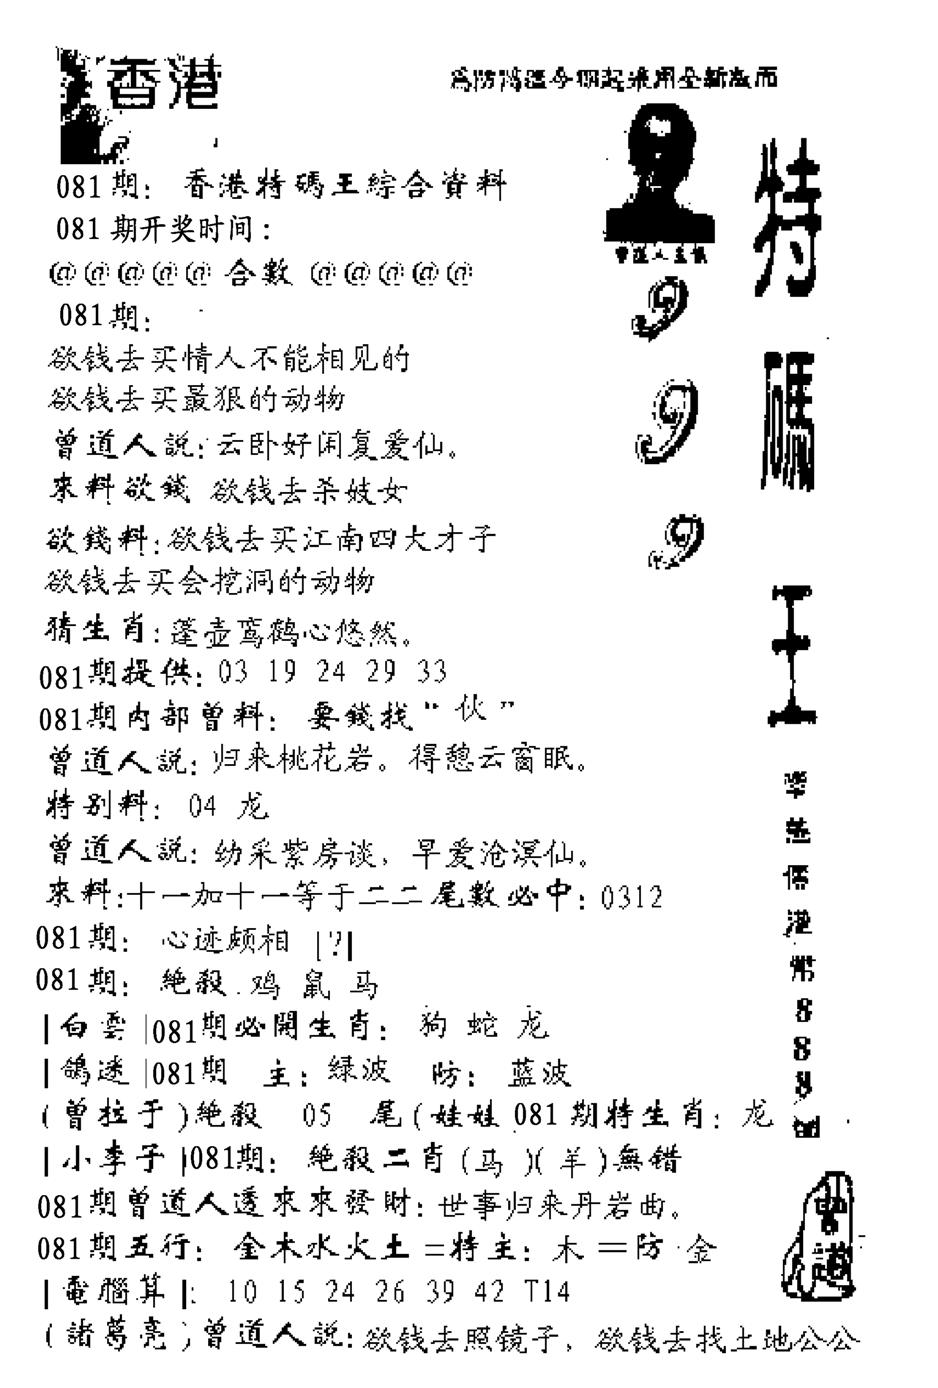 香港
為防偽區今期起采用全新版面
081期：香港特碼王綜合資料
081期开奖时间：
@@@@@ 合數 @@@@@
081期：
欲钱去买情人不能相见的
欲钱去买最狠的动物
曾道人説：云卧好闲复爱仙。
來料欲錢 欲钱去杀妓女
欲錢料：欲钱去买江南四大才子
欲钱去买会挖洞的动物
猜生肖：蓬壶鸾鹤心悠然。
081期提供：03 19 24 29 33
081期内部曾料：要錢找“伙”
曾道人説：归来桃花岩。得憩云窗眠。
特别料：04 龙
曾道人説：幼采紫房谈，早爱沧溟仙。
來料:十一加十一等于二二尾數必中：0312
081期：心迹颇相 [?]
081期：絶殺.鸡 鼠 马
|白雲|081期必開生肖：狗 蛇 龙
|鴿迷|081期 主：绿波 防：蓝波
(曾拉于)絶殺 05 尾(娃娃 081期特生肖：龙
|小李子|081期：絶殺二肖(马)(羊)無错
081期曾道人透來來發財：世事归来丹岩曲。
081期五行：金木水火土=特主：木=防 金
|電腦算|：10 15 24 26 39 42 T14
(諸葛亮)曾道人説：欲钱去照镜子，欲钱去找土地公公
特碼王
曾道人主儀
9
9
9
港幣888
曾道